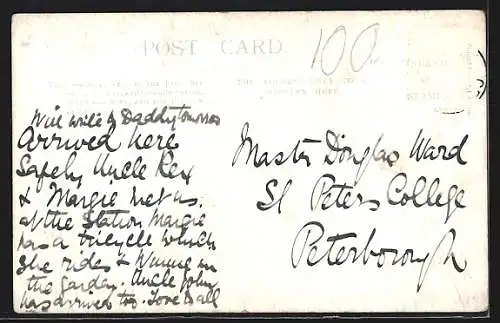 POST CARD
100
Will write to Daddy tomorrow
Arrived here
Safely, Uncle Rex
& Margie met us.
at the Station Margie
has a tricycle which
she rides & Winnie in
the garden. Uncle John
has arrived too. Love to all
Master Douglas Ward
St Peters College
Peterborough